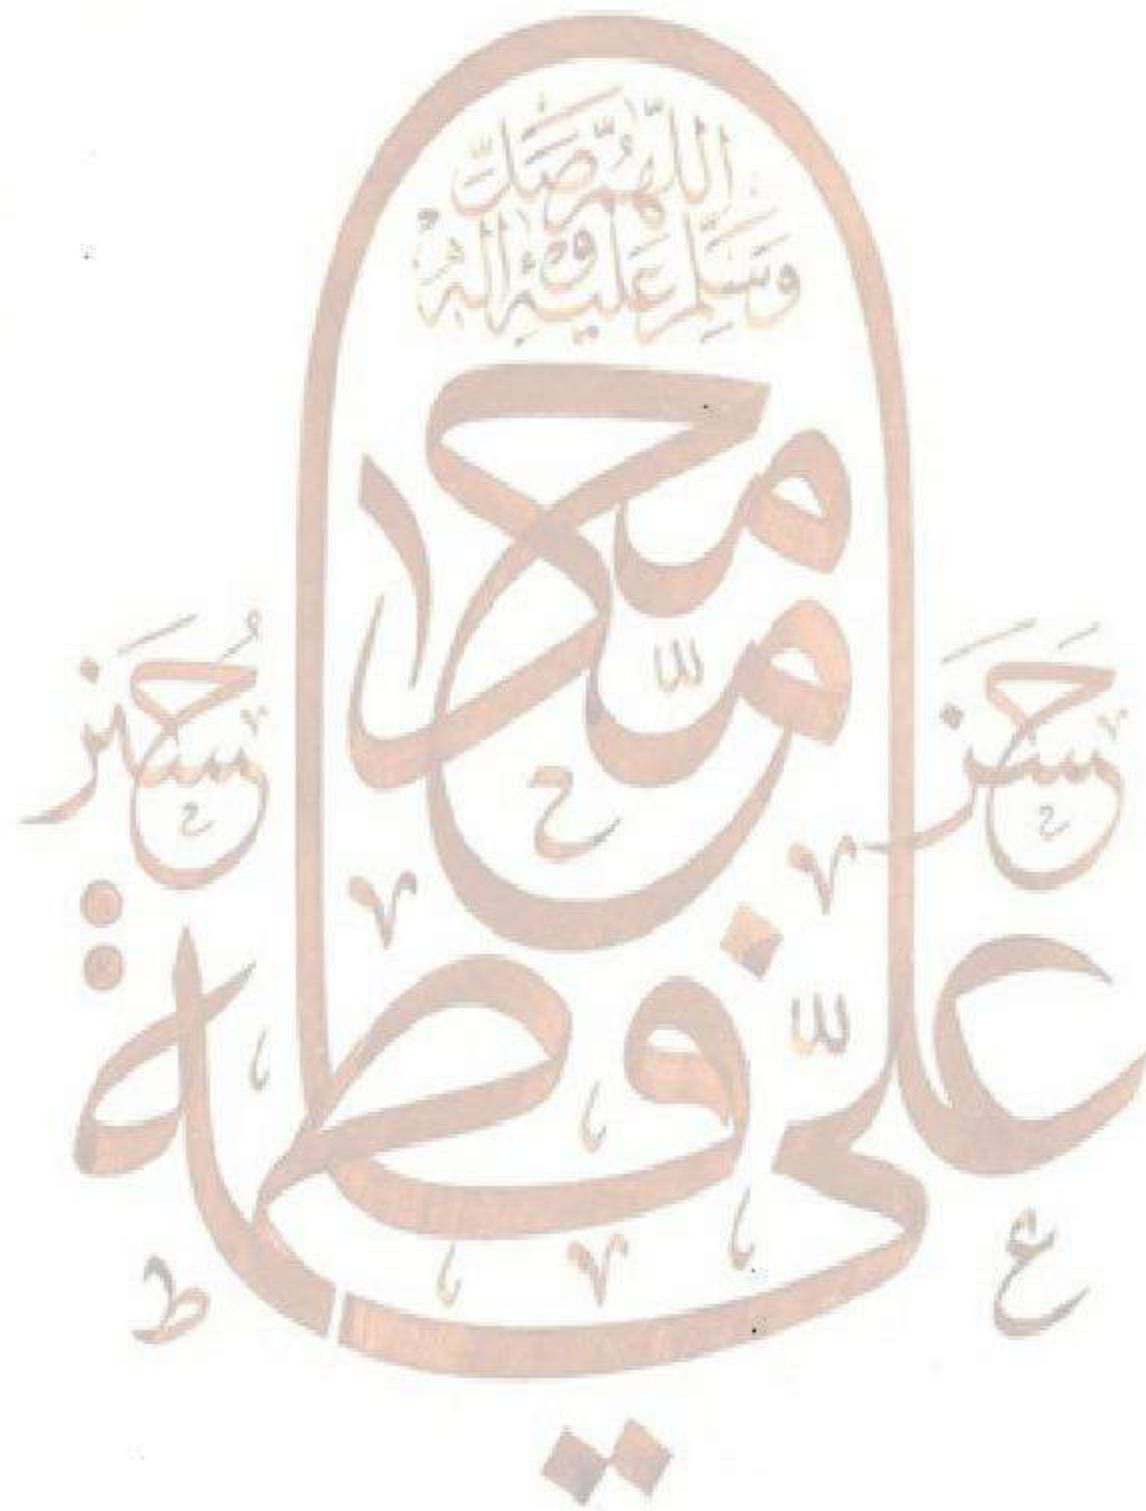 اللّٰهُمَّ صَلِّ
وَسَلِّمْ عَلَيْهِ وَاٰلِهٖ
محمد
حَسَن
حُسَين
علي
فاطمة